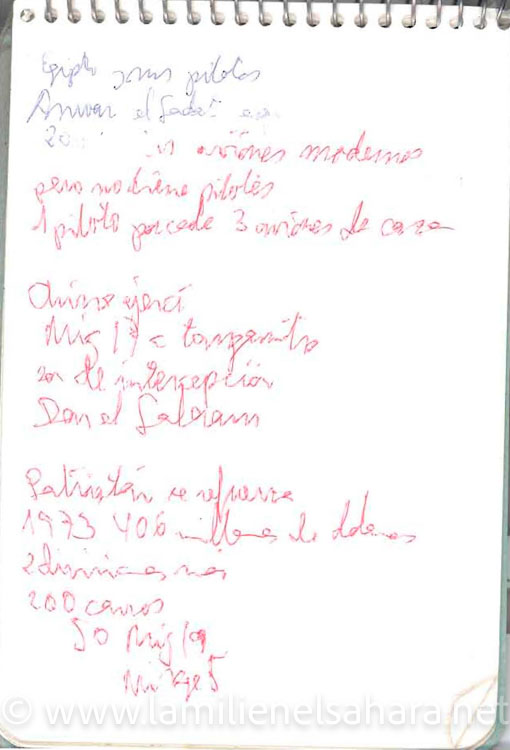 Egipto y sus pilotos
Anwar el Sadat
aviones modernos
pero no tiene pilotos
1 piloto por cada 3 aviones de caza
Mig 17 a
de intercepción
Dar el Salaam
se refuerza
1973 406 millones de dolares
2 divisiones mas
200 carros
50 Mig 19
Mirage 5
© www.lamilienelsahara.net